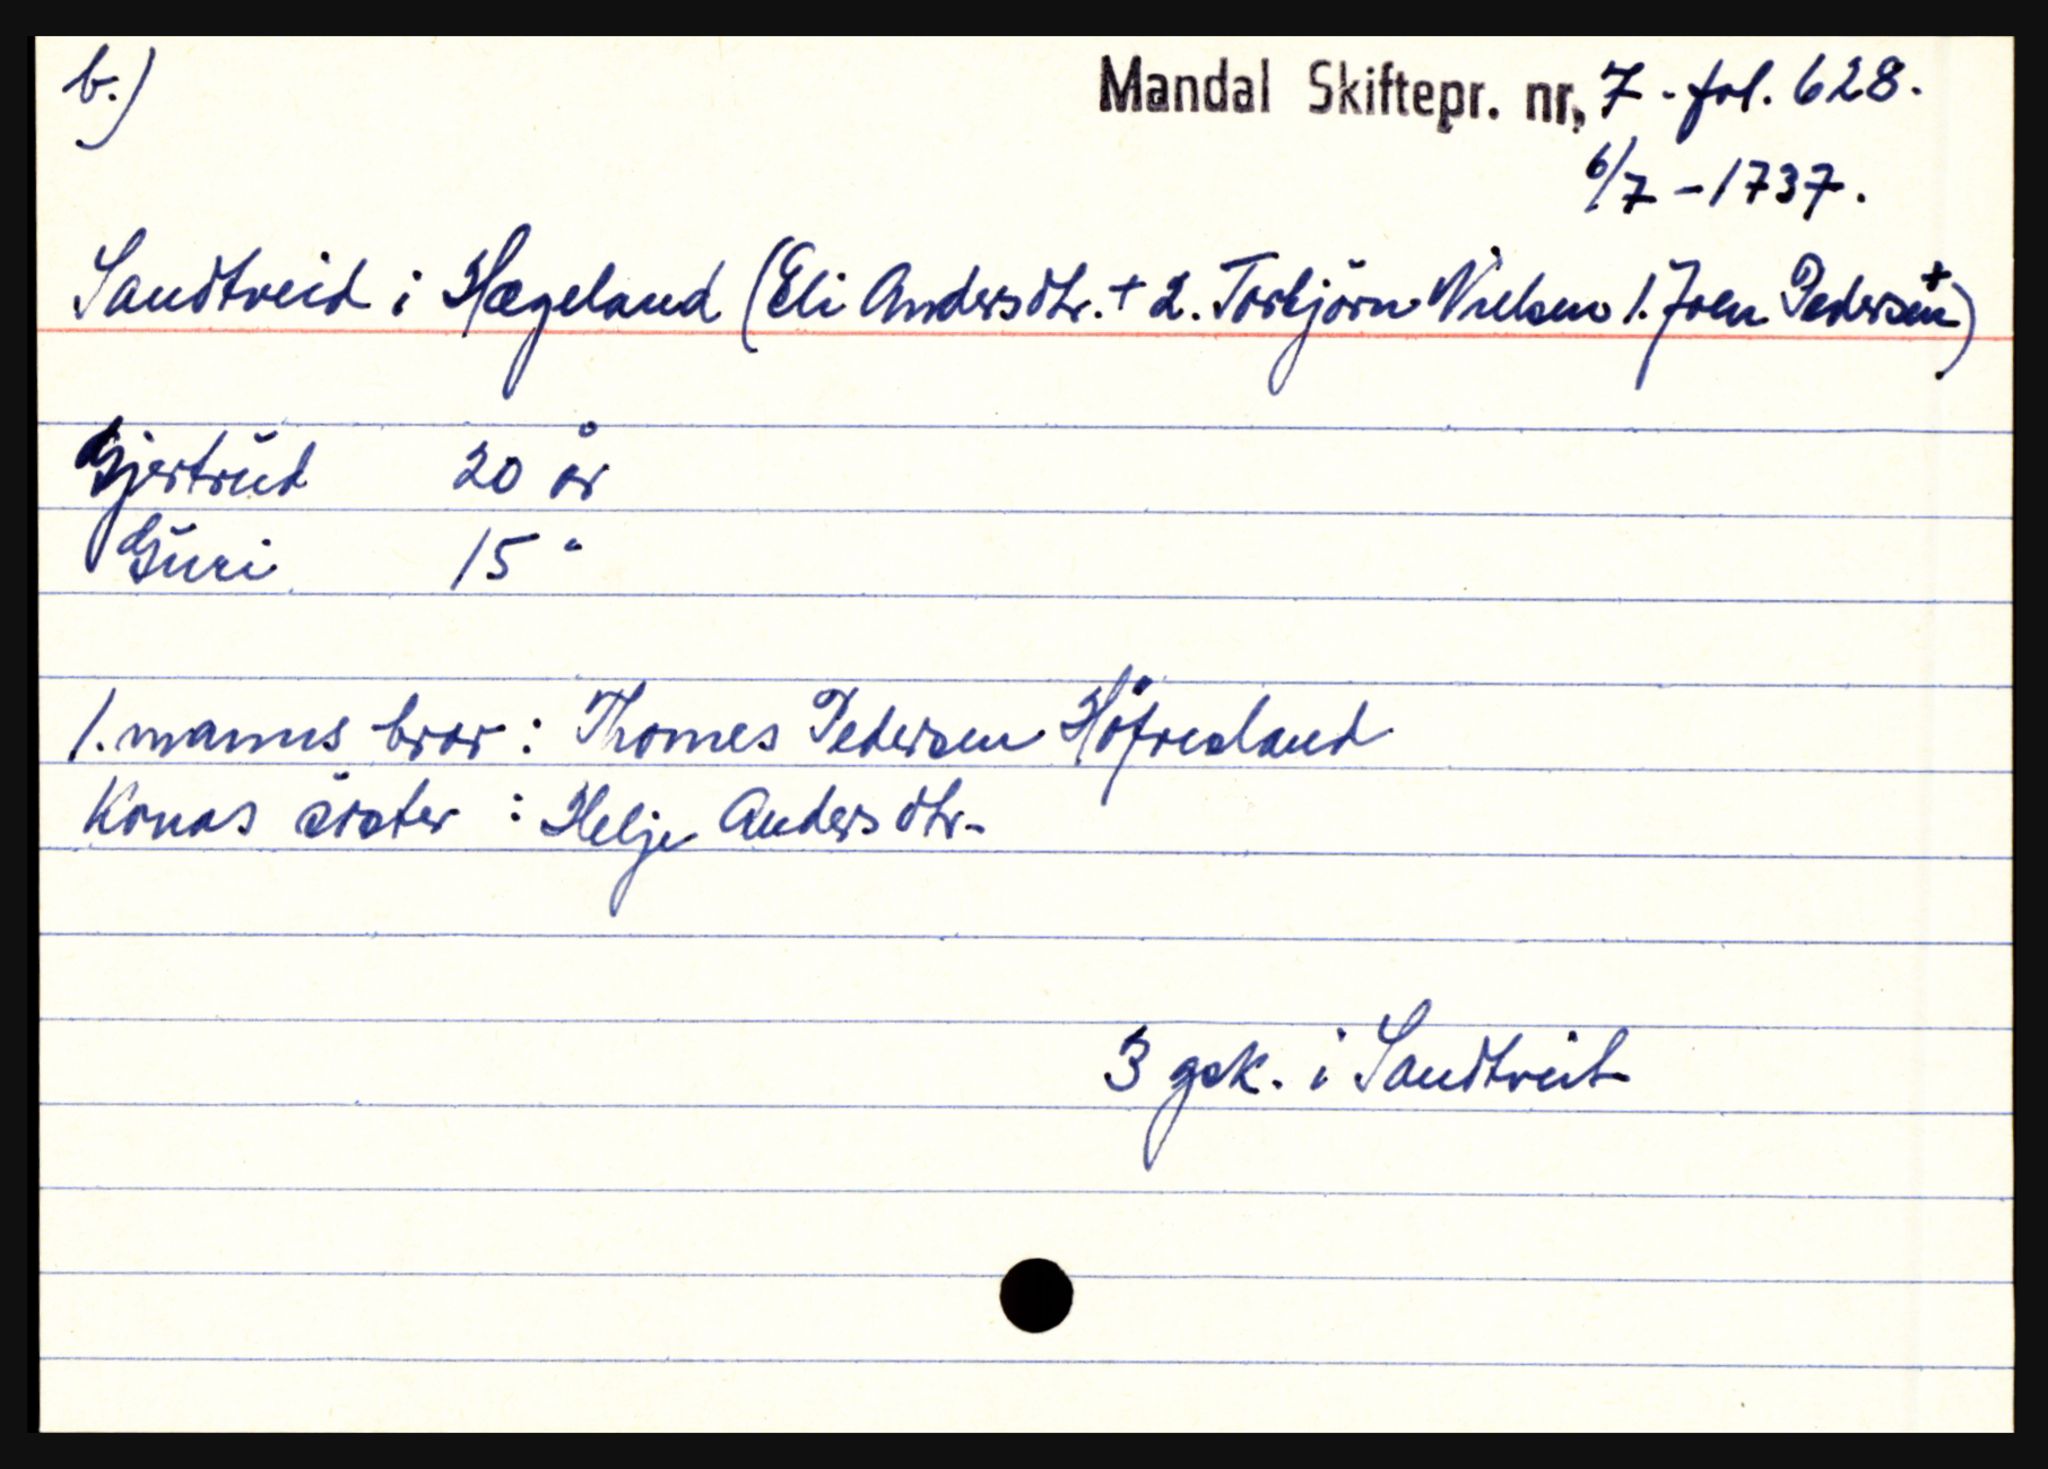 b.)
Mandal Skiftepr. nr. 7 - fol. 628.
6/7 - 1737.
Sandtveid i Hægeland (Eli Andersdtr. + 2. Torbjörn Nielsen 1. Joen Pedersen +)
Gjertrud 20 år
Guri 15 "
1. manns bror : Thomes Pedersen Höfresland
Konas söster : Helje Andersdtr.
3 gsk. i Sandtveit